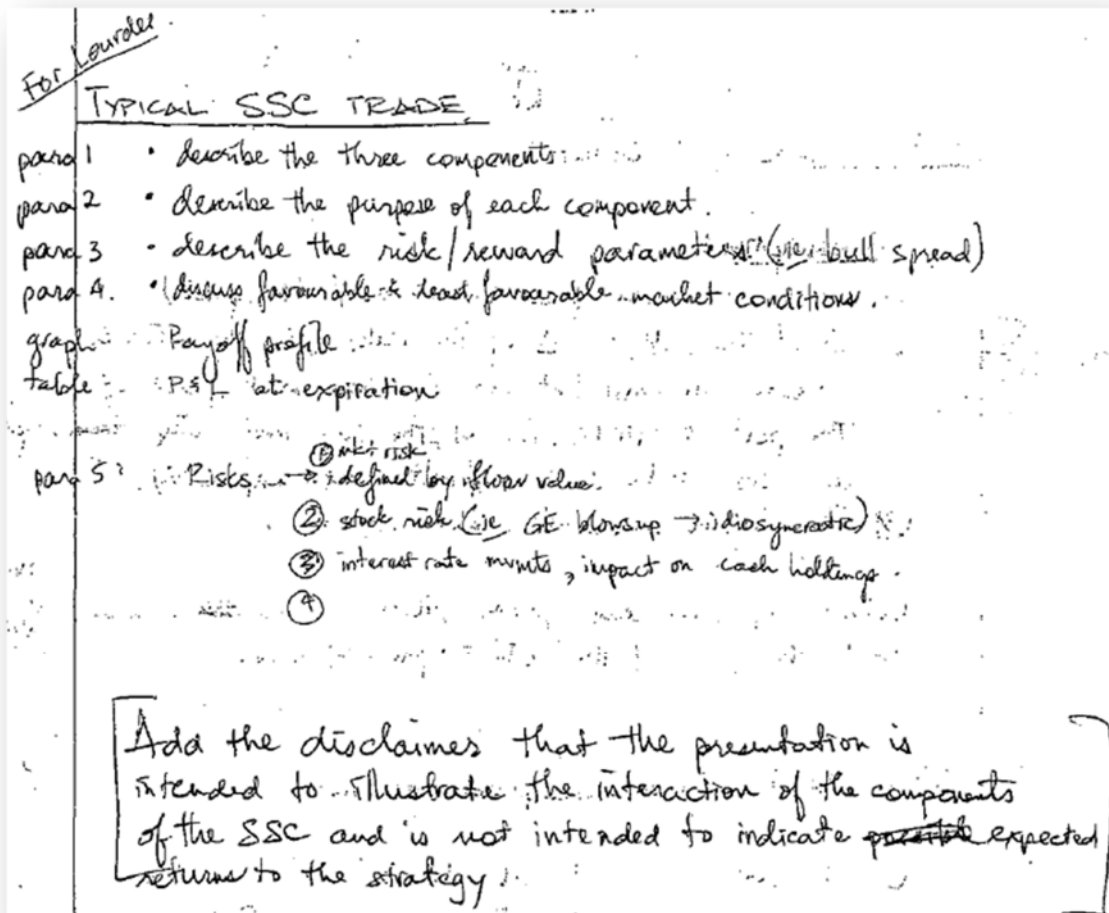 For Lourdes.
TYPICAL SSC TRADE.
para 1 • describe the three components
para 2 • describe the purpose of each component.
para 3 • describe the risk/reward parameters (ie. bull spread)
para 4. • discuss favourable & least favourable market conditions.
graph Payoff profile
table P&L at expiration
① mkt risk
para 5 Risks → defined by floor value.
② stock risk (ie GE blows up → idiosyncratic)
③ interest rate mvmts, impact on cash holdings.
④
Add the disclaimer that the presentation is
intended to illustrate the interaction of the components
of the SSC and is not intended to indicate expected
returns to the strategy.